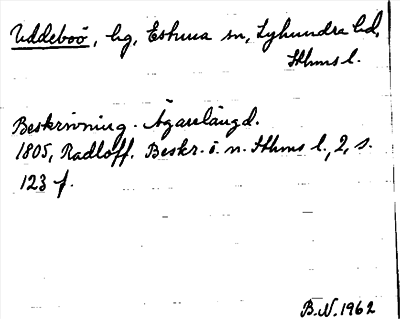 Uddeboö, hg, Estuna sn, Lyhundra hd,
Sthms l.
Beskrivning. Ägarelängd.
1805, Radloff. Beskr. ö. n. Sthms l., 2, s.
123 f.
B.N. 1962